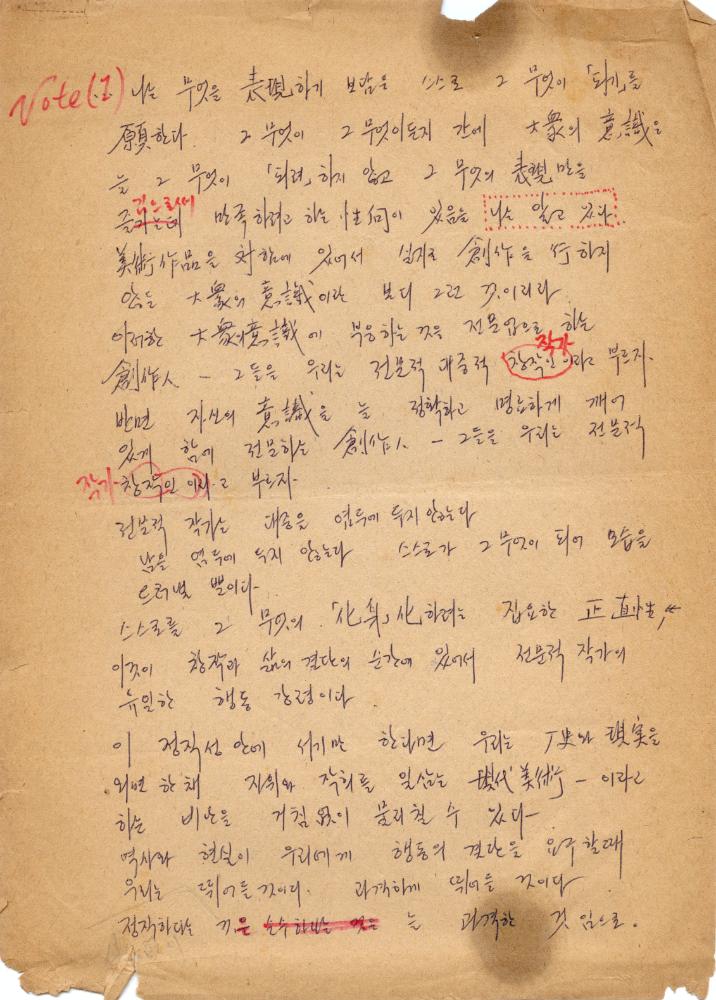 Note(.1) 나는 무엇을 表現하기 보담은 스스로 그 무엇이 「되기」를
願한다. 그 무엇이 그 무엇이든지 간에 大衆의 意識은
늘 그 무엇이 「되려」하지 않고 그 무엇의 表現만을
즐김으로써 만족하려고 하는 性向이 있음을 나는 알고 있다.
美術作品을 対함에 있어서 실지로 創作을 行하지
않는 大衆의 意識이란 보다 그런 것이리라.
이러한 大衆意識에 부응하는 것을 전문업으로 하는
創作人 - 그들을 우리는 전문적 대중적 창작인 작가이라고 부르자.
반면 자신의 意識을 늘 정확하고 명료하게 깨어
있게 함에 전문하는 創作人 - 그들을 우리는 전문적
작가 창작인 이라고 부르자.
전문적 작가는 대중을 염두에 두지 않는다
남을 염두에 두지 않는다 스스로가 그 무엇이 되어 모습을
드러낼 뿐이다.
스스로를 그 무엇의 「化身」化하려는 집요한 正直性,
이것이 창작과 삶의 결단의 순간에 있어서 전문적 작가의
유일한 행동 강령이다.
이 정직성 안에 서기만 한다면 우리는 历史와 現実을
외면한채 지위와 작희를 일삼는 現代美術 - 이라고
하는 비난을 거침없이 물리칠 수 있다.
역사와 현실이 우리에게 행동의 결단을 요구할때
우리는 뛰어들것이다. 과격하게 뛰어들 것이다
정직하다는 것은 순수하다는 것은 늘 과격한 것임으로.